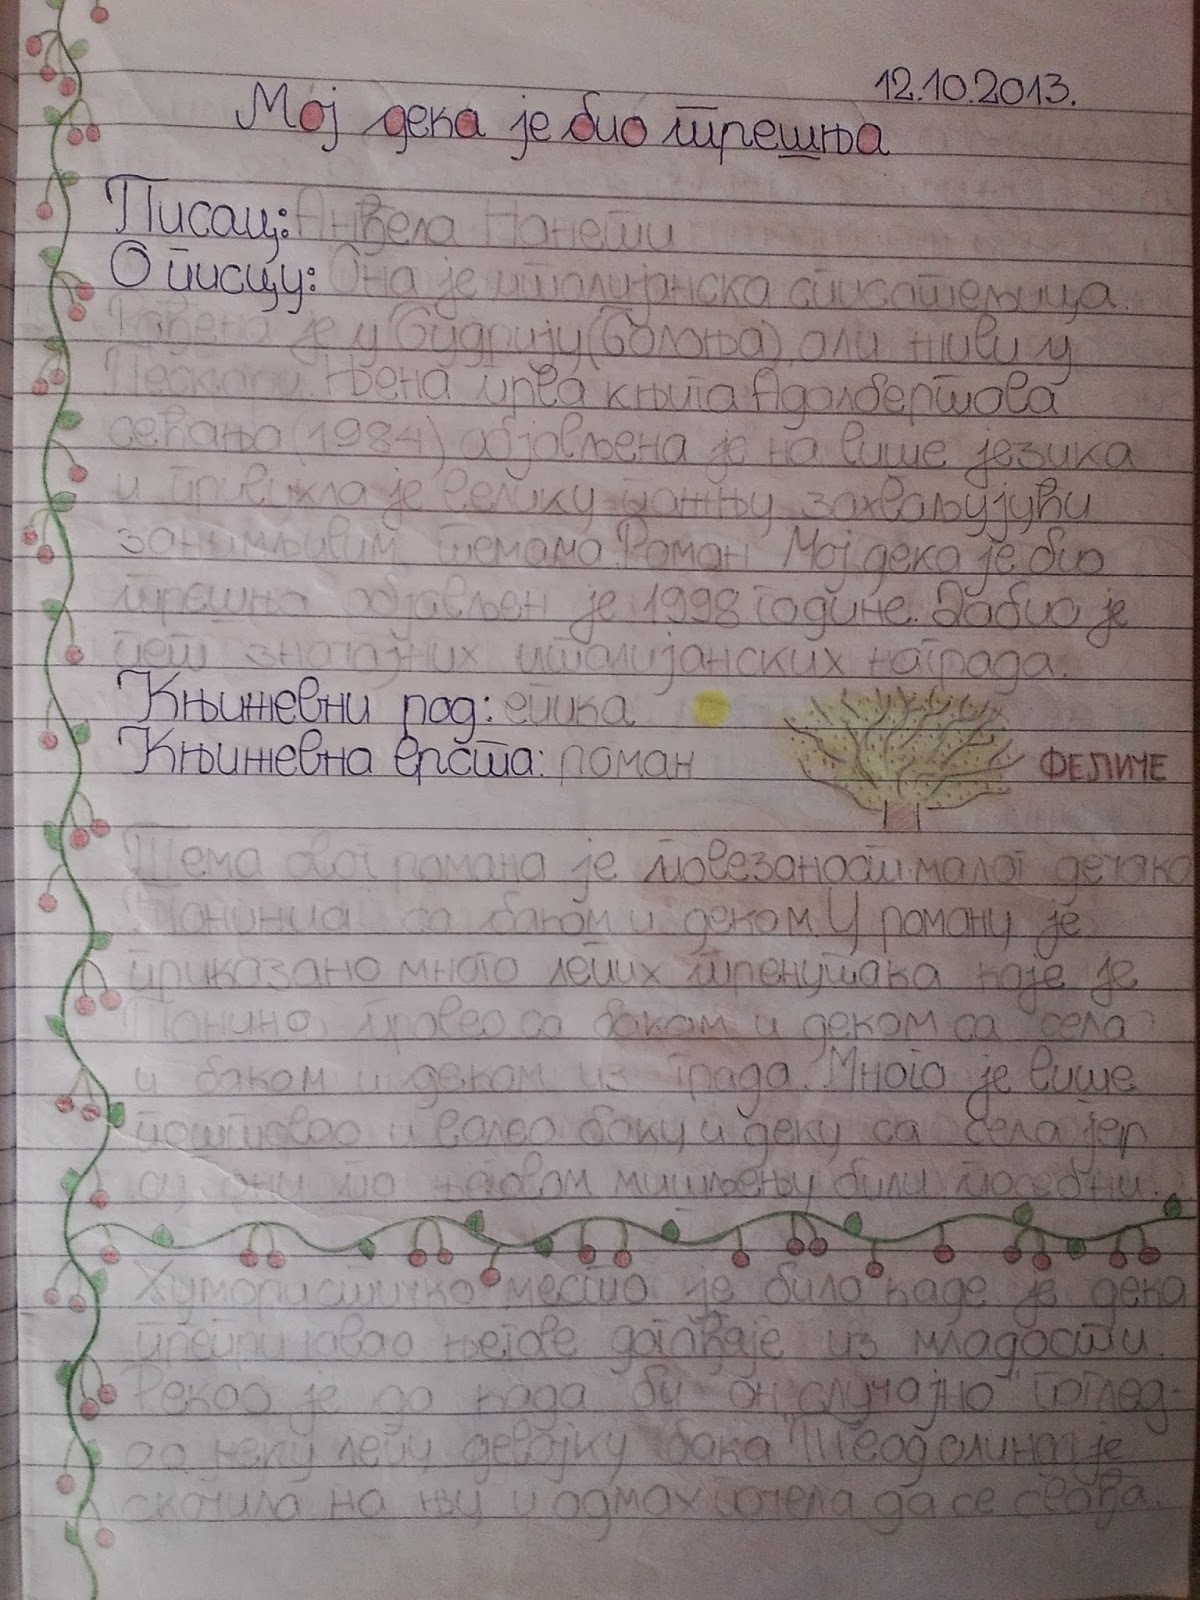 12.10.2013.
Мој дека је био трешња
Писац: Анђела Нанети
О писцу: Она је италијанска списатељица.
Рођена је у Будрију (Болоња), али живи у
Пескари. Њена прва књига Адалбертова
сећања (1984) објављена је на више језика
и привукла је велику пажњу захваљујући
занимљивим темама. Роман Мој дека је био
трешња објављен је 1998. године. Добио је
пет значајних италијанских награда.
Књижевни род: епика
Књижевна врста: роман
ФЕЛИЧЕ
Тема овог романа је повезаност малог дечака
Тонинина са баком и деком. У роману је
приказано много лепих тренутака које је
Тонино провео са баком и деком са села
и баком и деком из града. Много је више
поштовао и волео баку и деку са села јер
су они по његовом мишљењу били посебни.
Хумористичко место је било каде је дека
препричавао његове догађаје из младости.
Рекао је да када би он "случајно" поглед-
ао неку лепу девојку бака Теодолинда је
скочила на њу и одмах почела да се свађа.